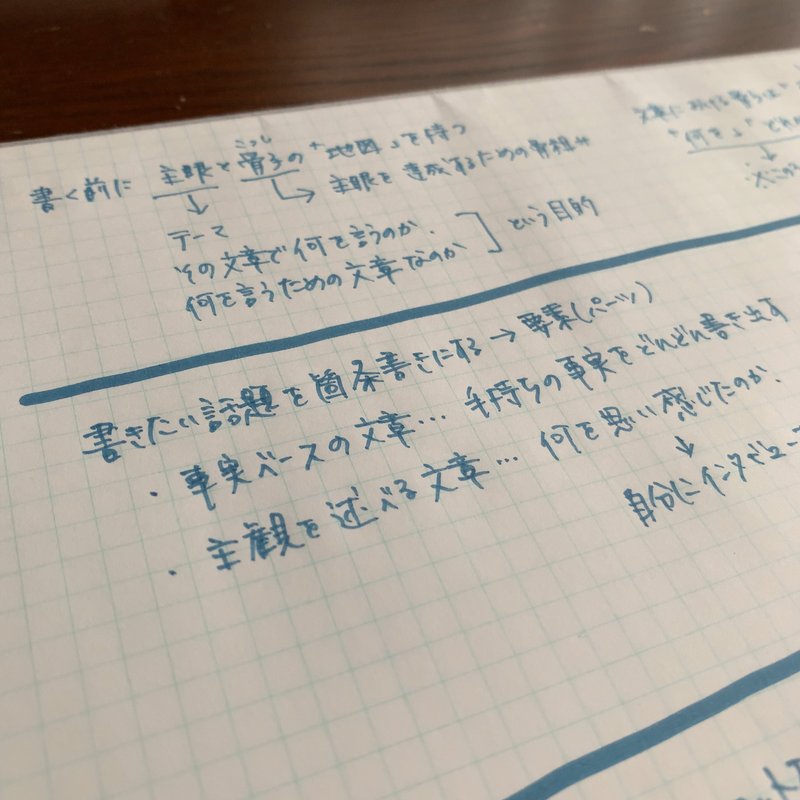 書く前に 主眼と骨子の「地図」を持つ
こっし
→ 主眼を達成するための骨組み
テーマ
その文章で何を言うのか.
何を言うための文章なのか
という目的
"何を" どれ
書きたい話題を箇条書きにする→要素(パーツ)
・事実ベースの文章… 手持ちの事実をどんどん書き出す
・主観を述べる文章… 何を思い感じたのか.
自分にインタビュー